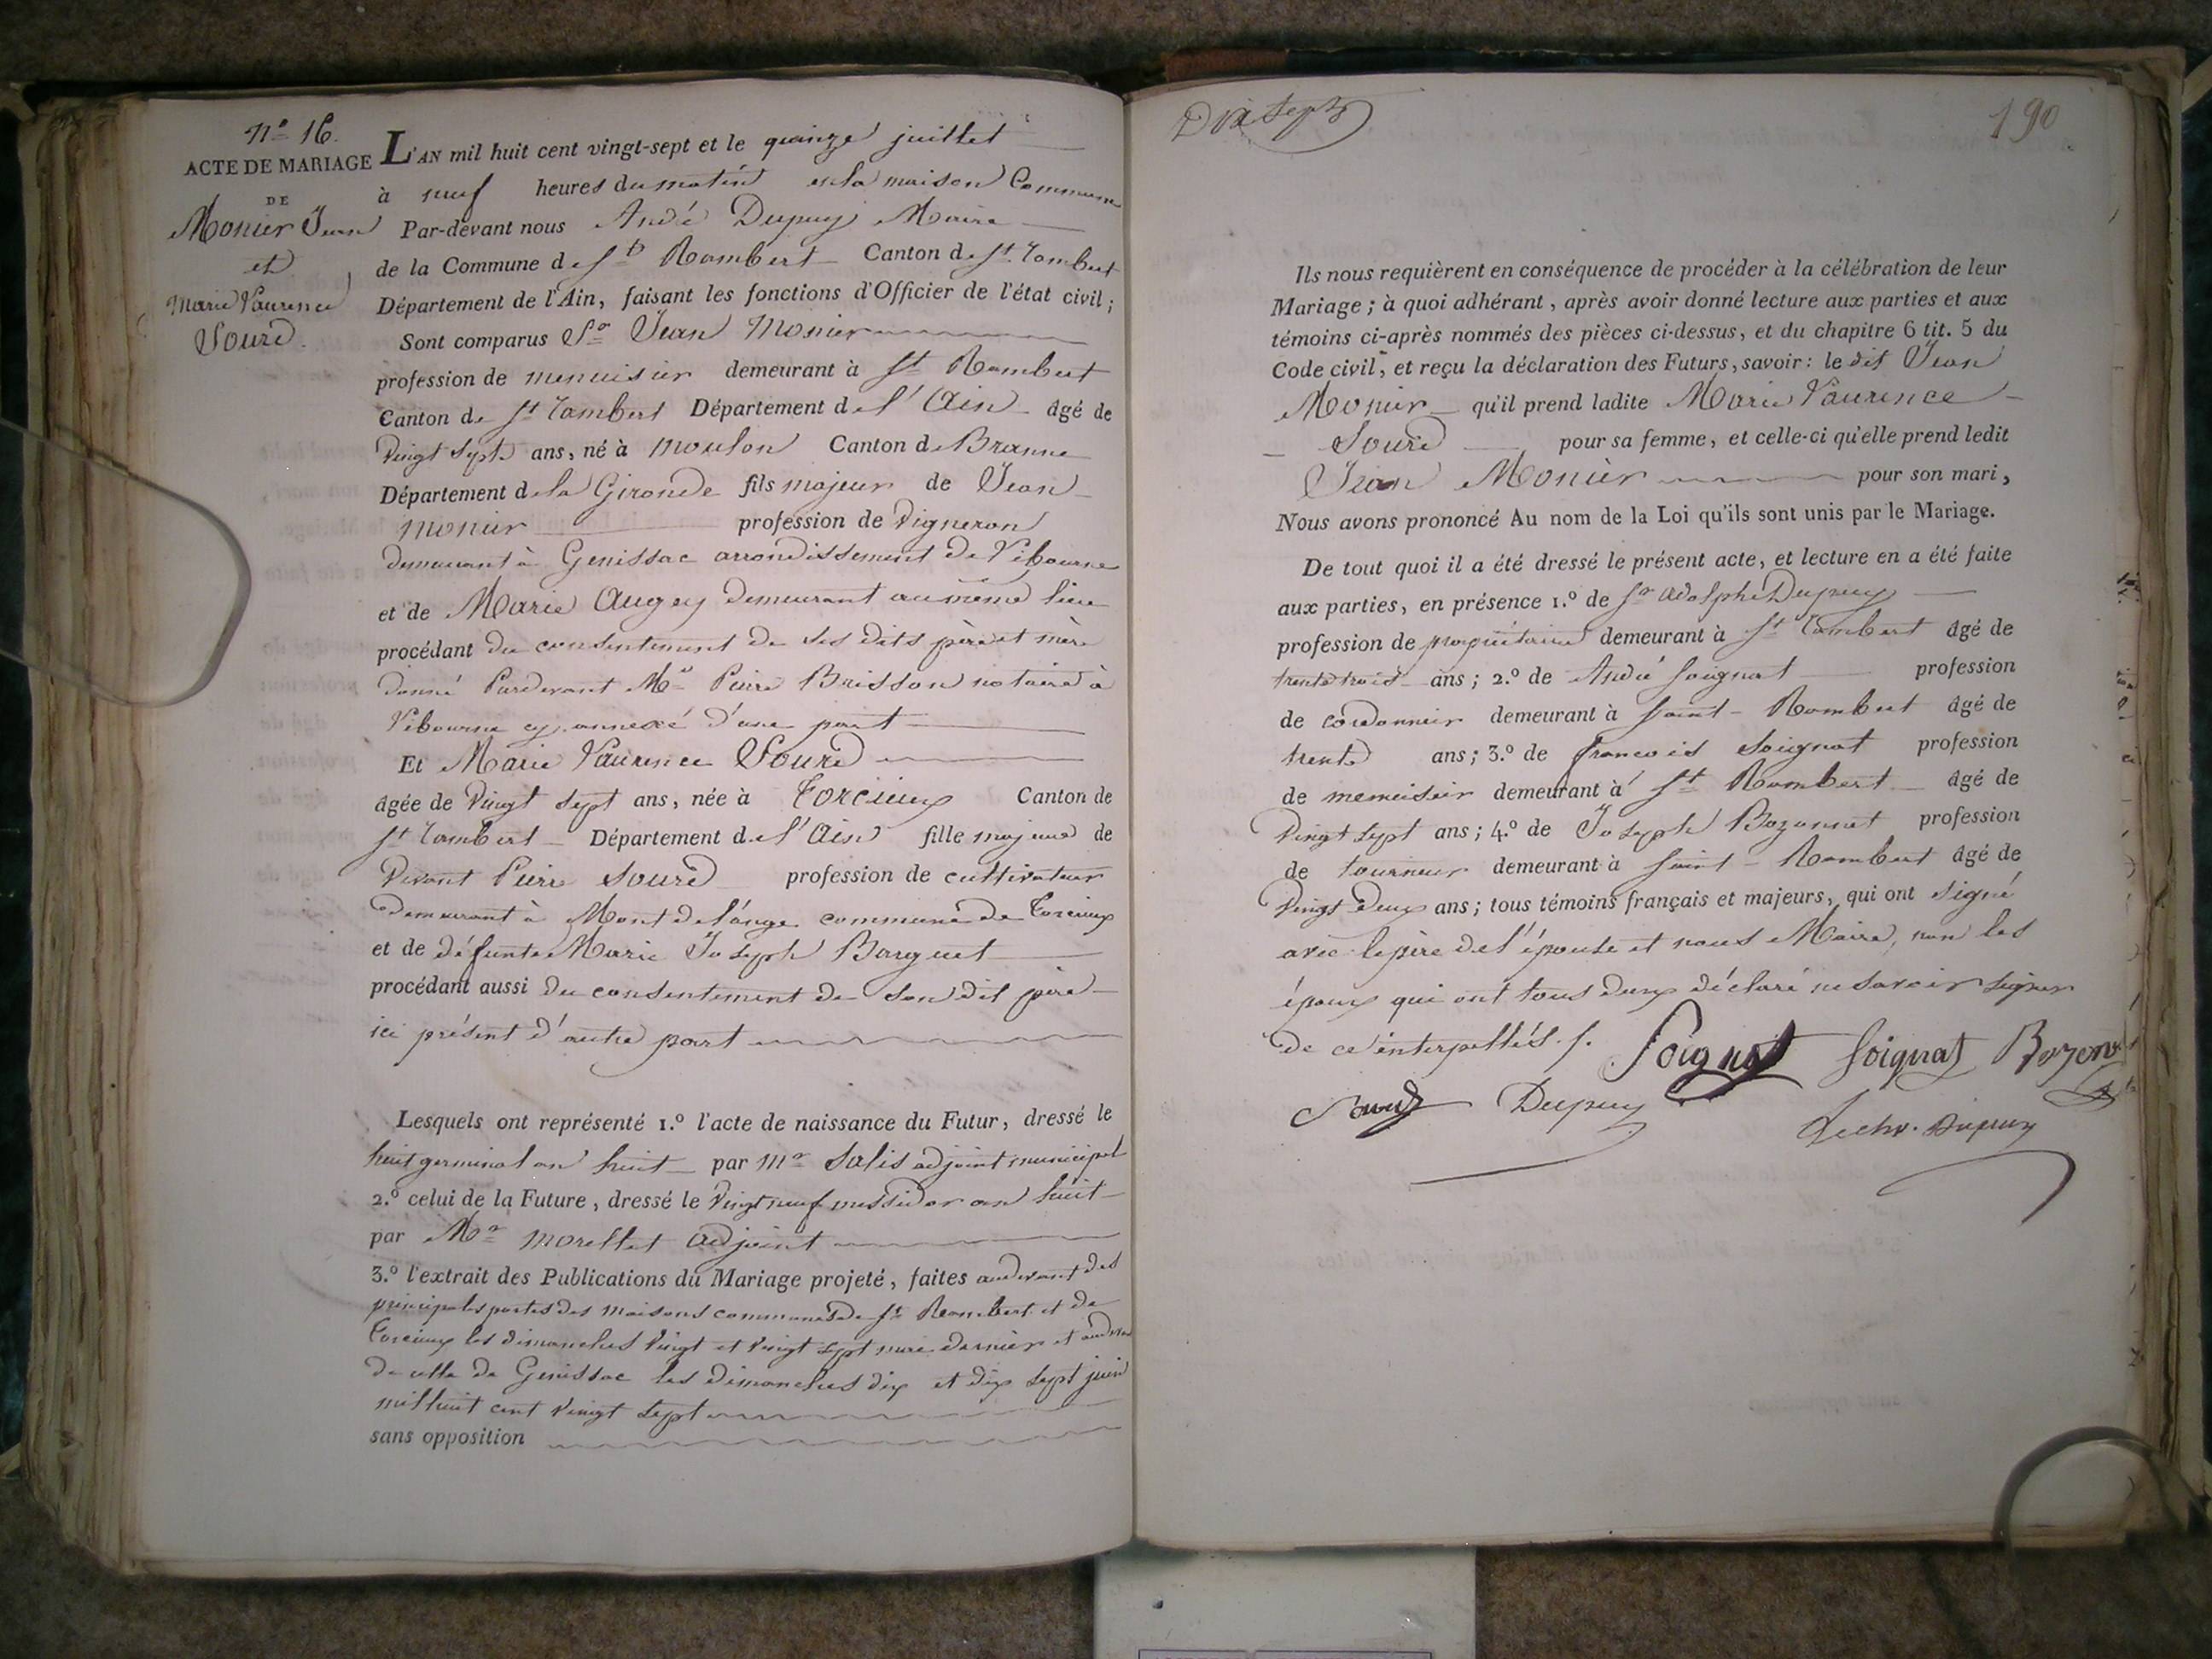 N.º 16.
ACTE DE MARIAGE
DE
Monier Jean
et
Marie Laurence
Sourd.
L'AN mil huit cent vingt-sept et le quinze juillet
à neuf heures du matin en la maison Commune
Par-devant nous André Dupuy Maire
de la Commune de St Rambert Canton de St Rambert
Département de l'Ain, faisant les fonctions d'Officier de l'état civil;
Sont comparus Sr Jean Monier
profession de menuisier demeurant à St Rambert
Canton de St Rambert Département de l'Ain âgé de
vingt sept ans, né à Moulon Canton de Branne
Département de la Gironde fils majeur de Jean
Monier profession de vigneron
demeurant à Genissac arrondissement de Libourne
et de Marie Augey demeurant au même lieu
procédant du consentement de ses dits père et mère
donné Pardevant Me Pierre Brisson notaire à
Libourne cy annexé d'une part
Et Marie Laurence Sourd
âgée de vingt sept ans, née à Torcieux Canton de
St Rambert Département de l'Ain fille majeure de
vivant Pierre Sourd profession de cultivateur
demeurant à Mont de l'ange commune de Torcieux
et de défunte Marie Joseph Barquet
procédant aussi du consentement de son dit père
ici présent d'autre part
Lesquels ont représenté 1.º l'acte de naissance du Futur, dressé le
huit germinal an huit par Mr Salis adjoint municipal
2.º celui de la Future, dressé le vingt neuf messidor an huit
par Mr Morellet adjoint
3.º l'extrait des Publications du Mariage projeté, faites audevant des
principales portes des maisons communes de St Rambert et de
Torcieux les dimanches vingt et vingt sept mai dernier et
de celle de Genissac les dimanches dix et dix sept juin
mil huit cent vingt sept
sans opposition
Dix sept
190
Ils nous requièrent en conséquence de procéder à la célébration de leur
Mariage; à quoi adhérant, après avoir donné lecture aux parties et aux
témoins ci-après nommés des pièces ci-dessus, et du chapitre 6 tit. 5 du
Code civil, et reçu la déclaration des Futurs, savoir: le dit Jean
Monier qu'il prend ladite Marie Laurence
Sourd pour sa femme, et celle-ci qu'elle prend ledit
Jean Monier pour son mari,
Nous avons prononcé Au nom de la Loi qu'ils sont unis par le Mariage.
De tout quoi il a été dressé le présent acte, et lecture en a été faite
aux parties, en présence 1.º de Sr Adolphe Dupuy
profession de propriétaire demeurant à St Rambert âgé de
trente trois ans; 2.º de André Soignat profession
de cordonnier demeurant à Saint-Rambert âgé de
trente ans; 3.º de francois Soignat profession
de menuisier demeurant à St Rambert âgé de
vingt sept ans; 4.º de Joseph Bozonnet profession
de tourneur demeurant à Saint-Rambert âgé de
vingt deux ans; tous témoins français et majeurs, qui ont signé
avec le père de l'épouse et nous Maire, non les
époux qui ont tous deux déclaré ne savoir signer
de ce interpellés.
Soignat Soignat
Sourd Dupuy
Dupuy